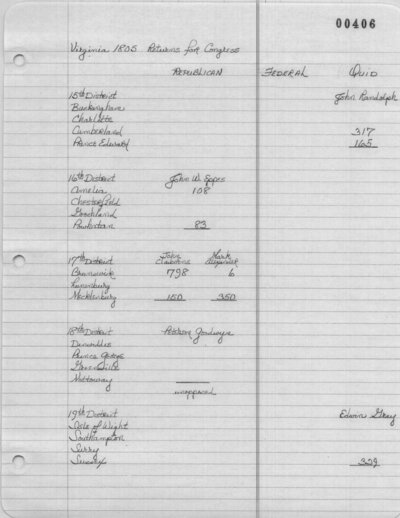 00406
Virginia 1805 Returns for Congress
REPUBLICAN FEDERAL QUID
15th District John Randolph
Buckingham
Charlotte
Cumberland 317
Prince Edward 165
16th District John W. Eppes
Amelia 108
Chesterfield
Goochland
Powhatan 83
17th District John Claiborne Mark Alexander
Brunswick 798 6
Lunenburg
Mecklenburg 150 350
18th District Peterson Goodwyn
Dinwiddie
Prince George
Greensville
Nottoway
unopposed
19th District Edwin Gray
Isle of Wight
Southampton
Surry
Sussex